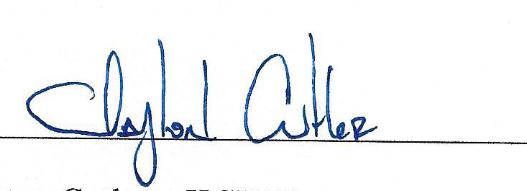 Clayton Cutler